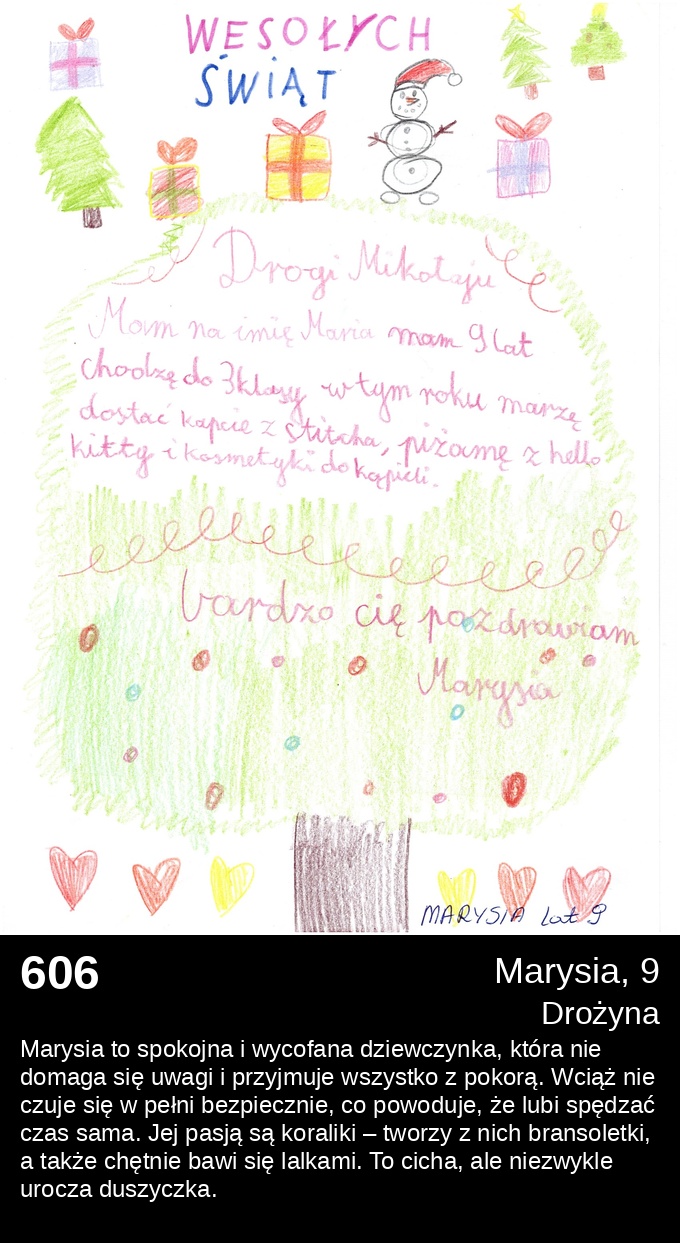 WESOŁYCH
ŚWIĄT
Drogi Mikołaju
Mam na imię Maria mam 9 lat
chodzę do 3 klasy w tym roku marzę
dostać kapcie z Stitcha, piżamę z hello
kitty i kosmetyki do kąpieli.
bardzo cię pozdrawiam
Marysia
MARYSIA lat 9
606
Marysia, 9
Drożyna
Marysia to spokojna i wycofana dziewczynka, która nie
domaga się uwagi i przyjmuje wszystko z pokorą. Wciąż nie
czuje się w pełni bezpiecznie, co powoduje, że lubi spędzać
czas sama. Jej pasją są koraliki – tworzy z nich bransoletki,
a także chętnie bawi się lalkami. To cicha, ale niezwykle
urocza duszyczka.